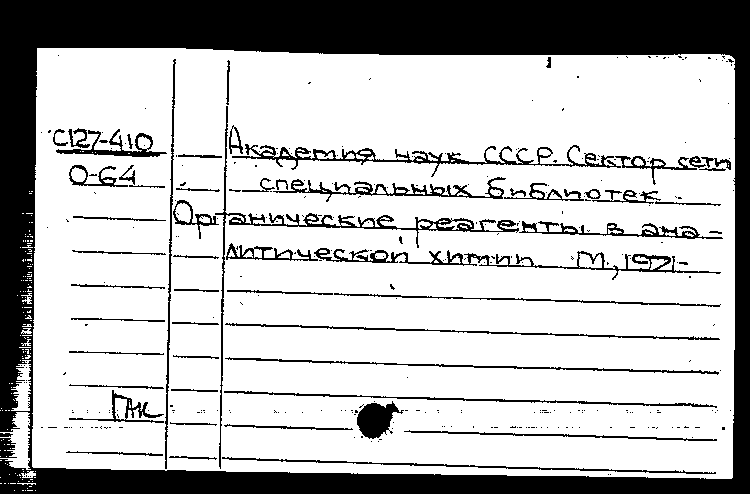 С127-410
О-64
Академия наук СССР. Сектор сети
специальных библиотек.
Органические реагенты в ана-
литической химии М., 1971-
ГАК